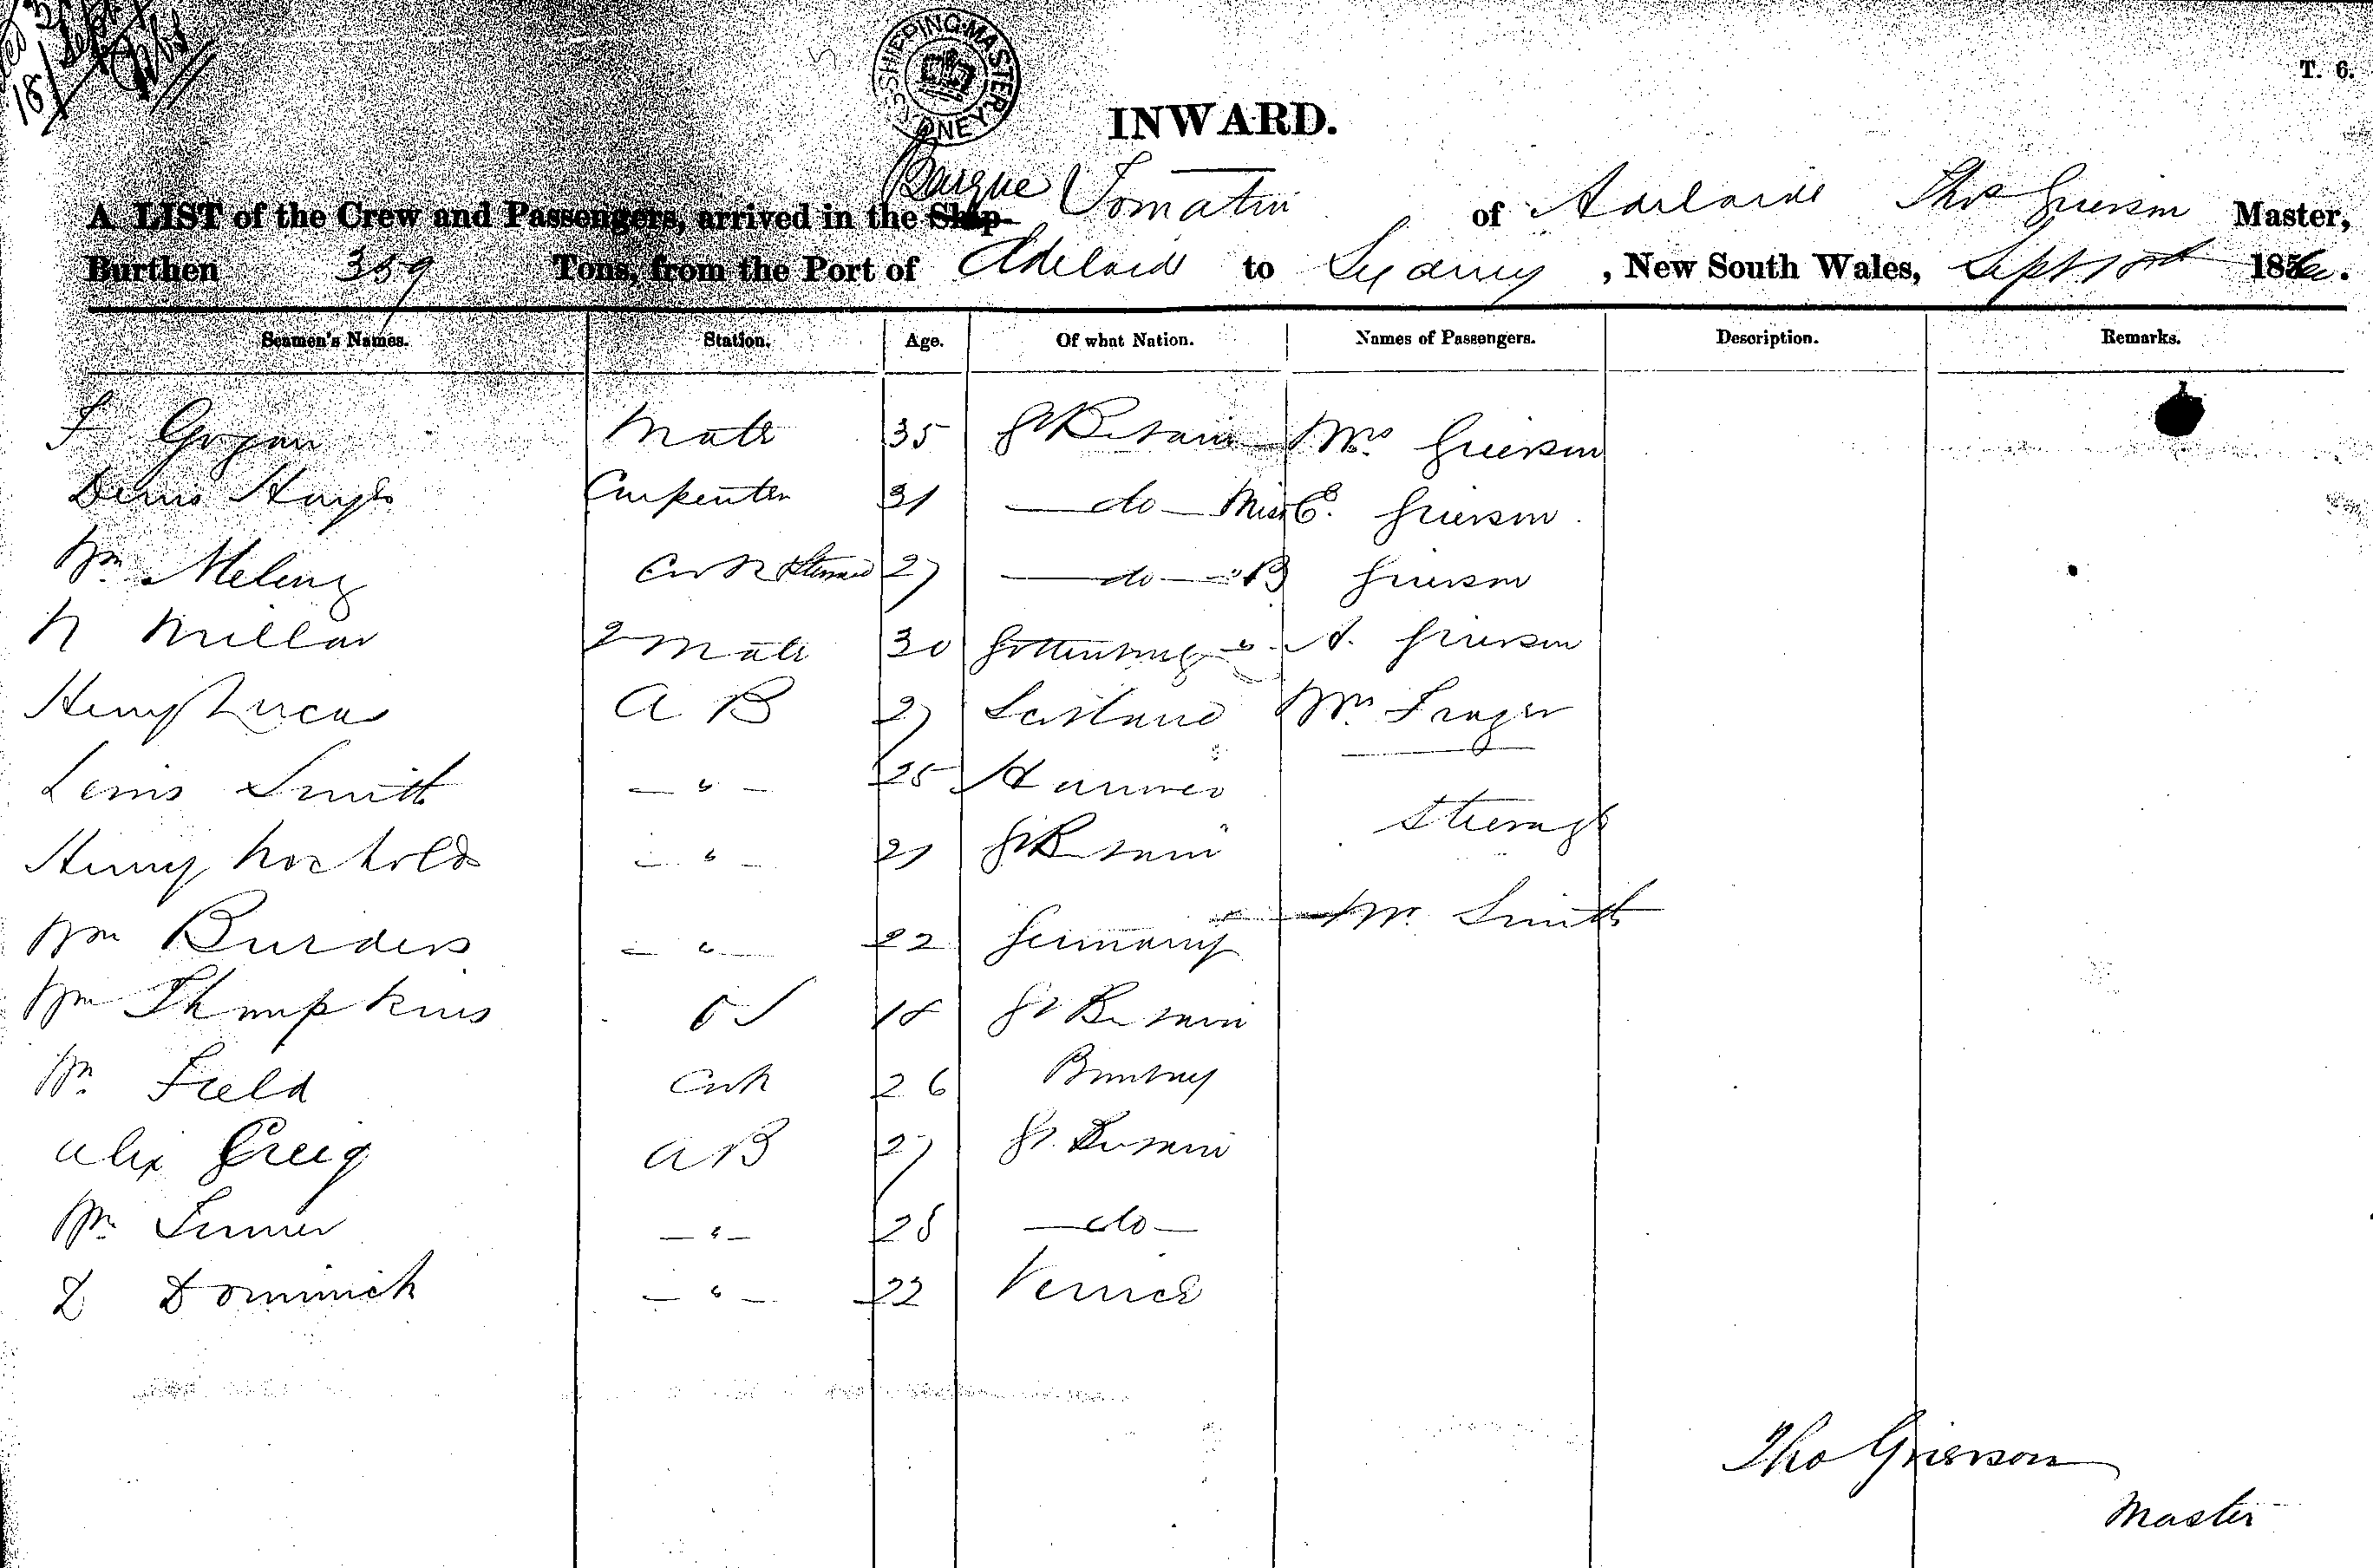 SHIPPING MASTER. SYDNEY.
T. 6.
INWARD.
Barque Tomatin
A LIST of the Crew and Passengers, arrived in the Ship of Adelaide Thos Grierson Master,
Burthen 359 Tons, from the Port of Adelaide to Sydney, New South Wales, Sept 1856.
Seamen's Names. Station. Age. Of what Nation. Names of Passengers. Description. Remarks.
F Grogan Mate 35 Gt Britain Mrs Grierson
Denis Hayes Carpenter 31 do Miss E. Grierson
Wm Cook & Steward 27 do " B Grierson
N Millar 2 Mate 30 Gottenburg " A. Grierson
Henry Lucas A B 27 Scotland Mr Frazer
Lewis Smith " 25 Hanover
Steerage
Henry " 21 Gt Britain
Mr Smith
Wm Burders " 22 Germany
Wm Thompkins O S 18 Gt Britain
Wm Field Cook 26 Bombay
Alex Greig A B 27 Gt Britain
Wm " 28 do
D Dominick " 22 Venice
Tho Grierson
Master